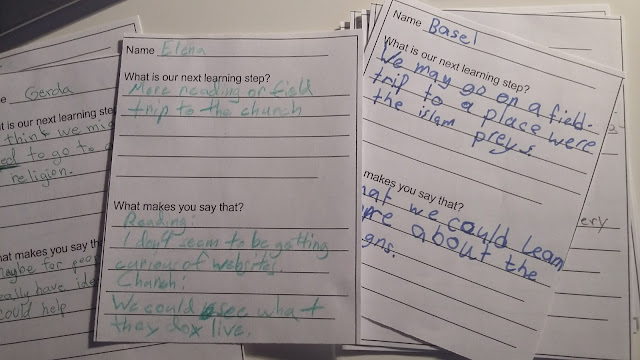 Gerda
at is our next learning step
think we mi
ed to go to
religion.
at makes you say th
maybe for peop
eally have ide
could help
Name Elena
What is our next learning step?
More reading or field
trip to the church
What makes you say that?
Reading:
I don't seem to be getting
curious of websites
Church:
We could see what
they do live.
Name Basel
What is our next learning step?
We may go on a field-
trip to a place were
the islam preys.
makes you say that?
hat we could learn
re about the
gns.
ery